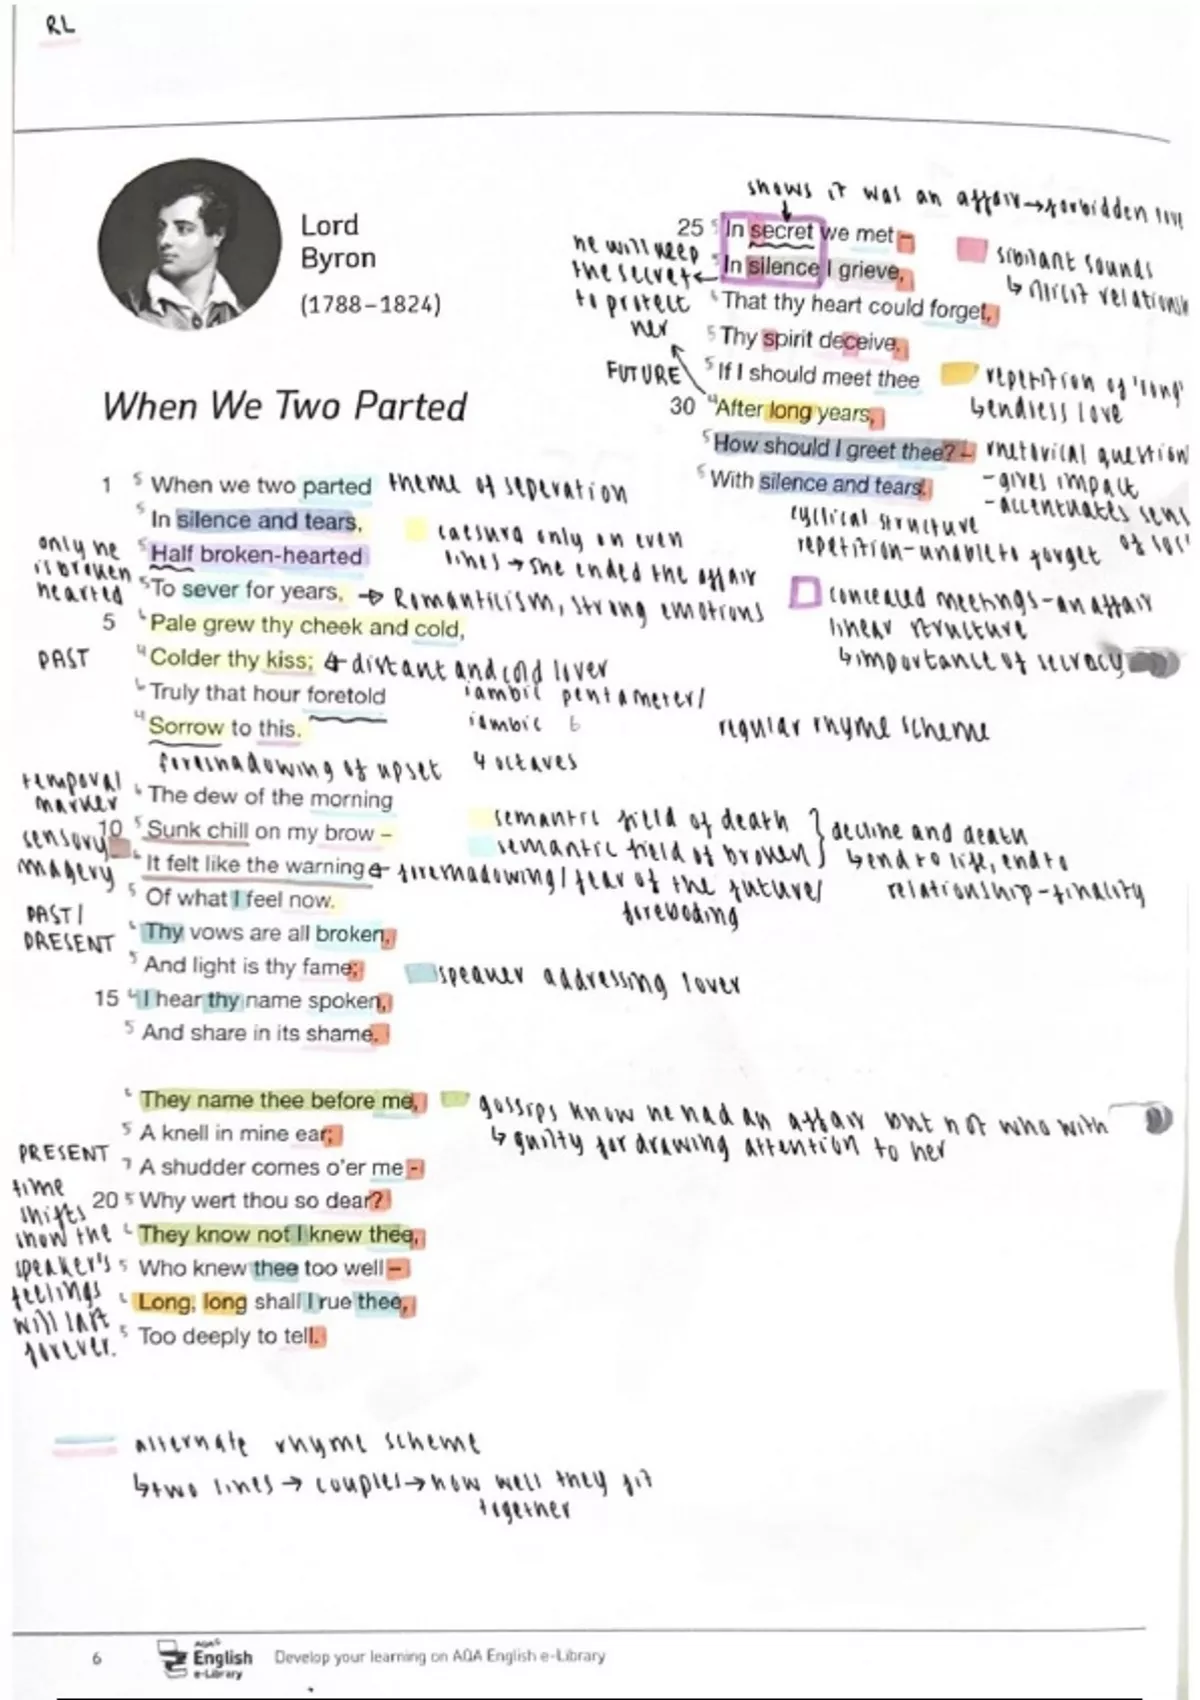 RL
Lord
Byron
(1788–1824)
When We Two Parted
1 5 When we two parted theme of seperation
5 In silence and tears,
caesura only on even
lines → she ended the affair
only he
is broken
hearted
5 Half broken-hearted
5 To sever for years, → Romanticism, strong emotions
5 6 Pale grew thy cheek and cold,
PAST
4 Colder thy kiss; distant and cold lover
6 Truly that hour foretold
4 Sorrow to this.
iambic pentameter/
iambic 6
4 octaves
regular rhyme scheme
foreshadowing of upset
temporal
marker
6 The dew of the morning
10 5 Sunk chill on my brow –
sensory
imagery
6 It felt like the warning foreshadowing/fear of the future/
foreboding
5 Of what I feel now.
semantic field of death
semantic field of broken
decline and death
↳ end to life, end to
relationship - finality
PAST/
PRESENT
6 Thy vows are all broken,
5 And light is thy fame;
speaker addressing lover
15 6 I hear thy name spoken,
5 And share in its shame.
6 They name thee before me,
gossips know he had an affair but not who with
↳ guilty for drawing attention to her
5 A knell in mine ear;
PRESENT
7 A shudder comes o'er me -
20 5 Why wert thou so dear?
6 They know not I knew thee,
5 Who knew thee too well –
6 Long, long shall I rue thee,
5 Too deeply to tell.
time
shifts
show the
speaker's
feelings
will last
forever.
shows it was an affair → forbidden love
25 5 In secret we met –
5 In silence I grieve,
he will keep
the secret ←
to protect
her
sibilant sounds
↳ illicit
6 That thy heart could forget,
5 Thy spirit deceive.
FUTURE
5 If I should meet thee
30 4 After long years,
repetition of 'long'
↳ endless love
5 How should I greet thee? –
5 With silence and tears.
rhetorical question
- gives impact
- accentuates
of
cyclical structure
repetition - unable to forget
concealed meetings - an affair
linear structure
↳ importance of secrecy
alternate rhyme scheme
↳ two lines → couples → how well they fit
together
6
AQA
English
e-Library
Develop your learning on AQA English e-Library